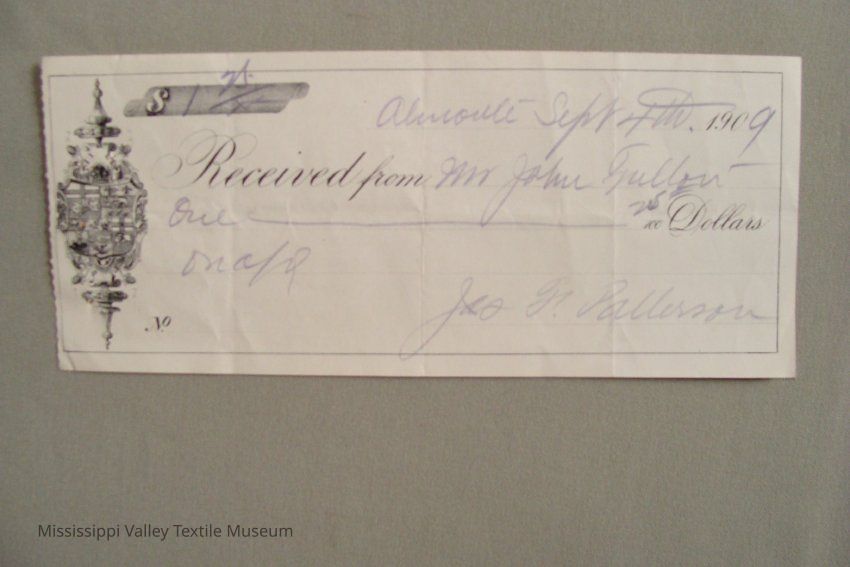 $ 1 25/
Almonte Sept 4th. 1909
Received from Mr John Fulton
One 25/100 Dollars
on a/c
Jas F. Patterson
No
Mississippi Valley Textile Museum